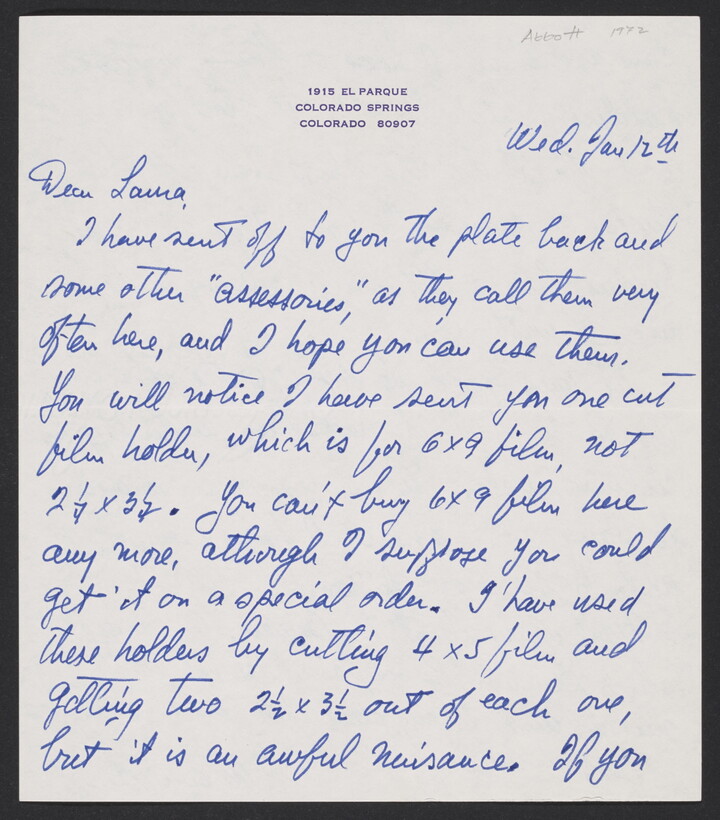 Abbott 1972
1915 EL PARQUE
COLORADO SPRINGS
COLORADO 80907
Wed. Jan 12th
Dear Laura,
I have sent off to you the plate back and
some other "assessories," as they call them very
often here, and I hope you can use them.
You will notice I have sent you one cut
film holder, which is for 6x9 film, not
2 1/4 x 3 1/4. You can't buy 6x9 film here
any more, although I suppose you could
get it on a special order. I have used
these holders by cutting 4x5 film and
getting two 2 1/2 x 3 1/2 out of each one,
but it is an awful nuisance. If you